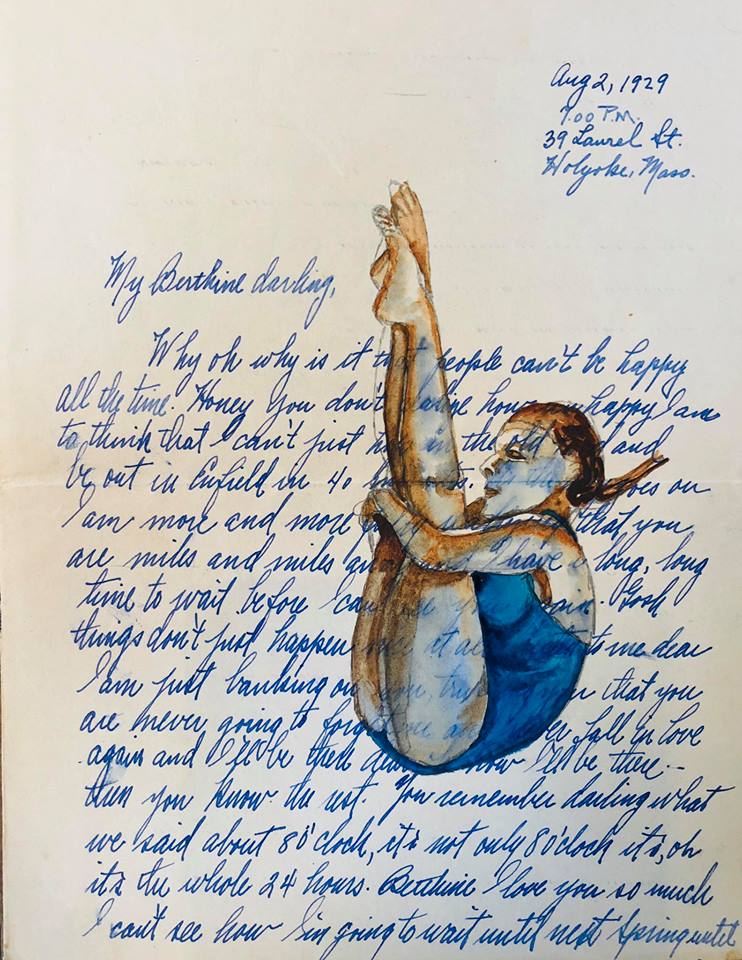 Aug 2, 1929
7.00 P.M.
39 Laurel St.
Holyoke, Mass.
My Berthine darling,
Why oh why is it that people can't be happy
all the time. Honey you don't realize how unhappy I am
to think that I can't just in the old and
be out in Enfield in 40 As the goes on
I am more and more that you
are miles and miles I have a long, long
time to wait before I can see you again. Gosh
things don't just happen it to me dear
I am just banking on you, you that you
are never going to forget me and fall in love
again and I'll be there I'll be there --
then you know the rest. You remember darling what
we said about 8 o'clock, it's not only 8 o'clock it's, oh
it's the whole 24 hours. Berthine I love you so much
I can't see how I'm going to wait until next Spring until